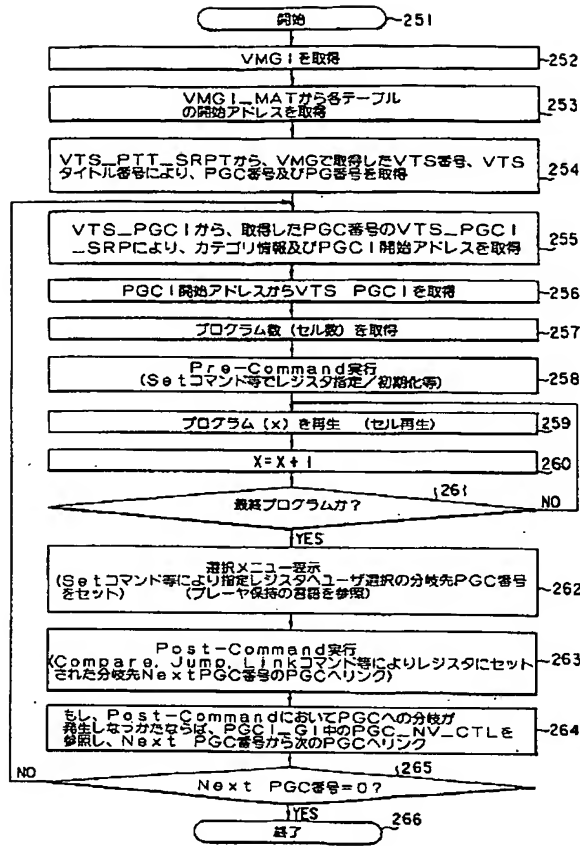 開始 251
VMGIを取得 252
VMGI_MATから各テーブル
の開始アドレスを取得 253
VTS_PTT_SRPTから、VMGで取得したVTS番号、VTS
タイトル番号により、PGC番号及びPG番号を取得 254
VTS_PGCIから、取得したPGC番号のVTS_PGCI
_SRPにより、カテゴリ情報及びPGCI開始アドレスを取得 255
PGCI開始アドレスからVTS PGCIを取得 256
プログラム数(セル数)を取得 257
Pre-Command実行
(Setコマンド等でレジスタ指定/初期化等) 258
プログラム(x)を再生 (セル再生) 259
X=X+1 260
最終プログラムか? 261
NO
YES
選択メニュー表示
(Setコマンド等により指定レジスタへユーザ選択の分岐先PGC番号
をセット) (プレーヤ保持の言語を参照) 262
Post-Command実行
(Compare, Jump, Linkコマンド等によりレジスタにセット
された分岐先NextPGC番号のPGCへリンク) 263
もし、Post-CommandにおいてPGCへの分岐が
発生しなつかたならば、PGCI_GI中のPGC_NV_CTLを
参照し、Next PGC番号から次のPGCへリンク 264
NO 265
Next PGC番号=0?
YES
終了 266